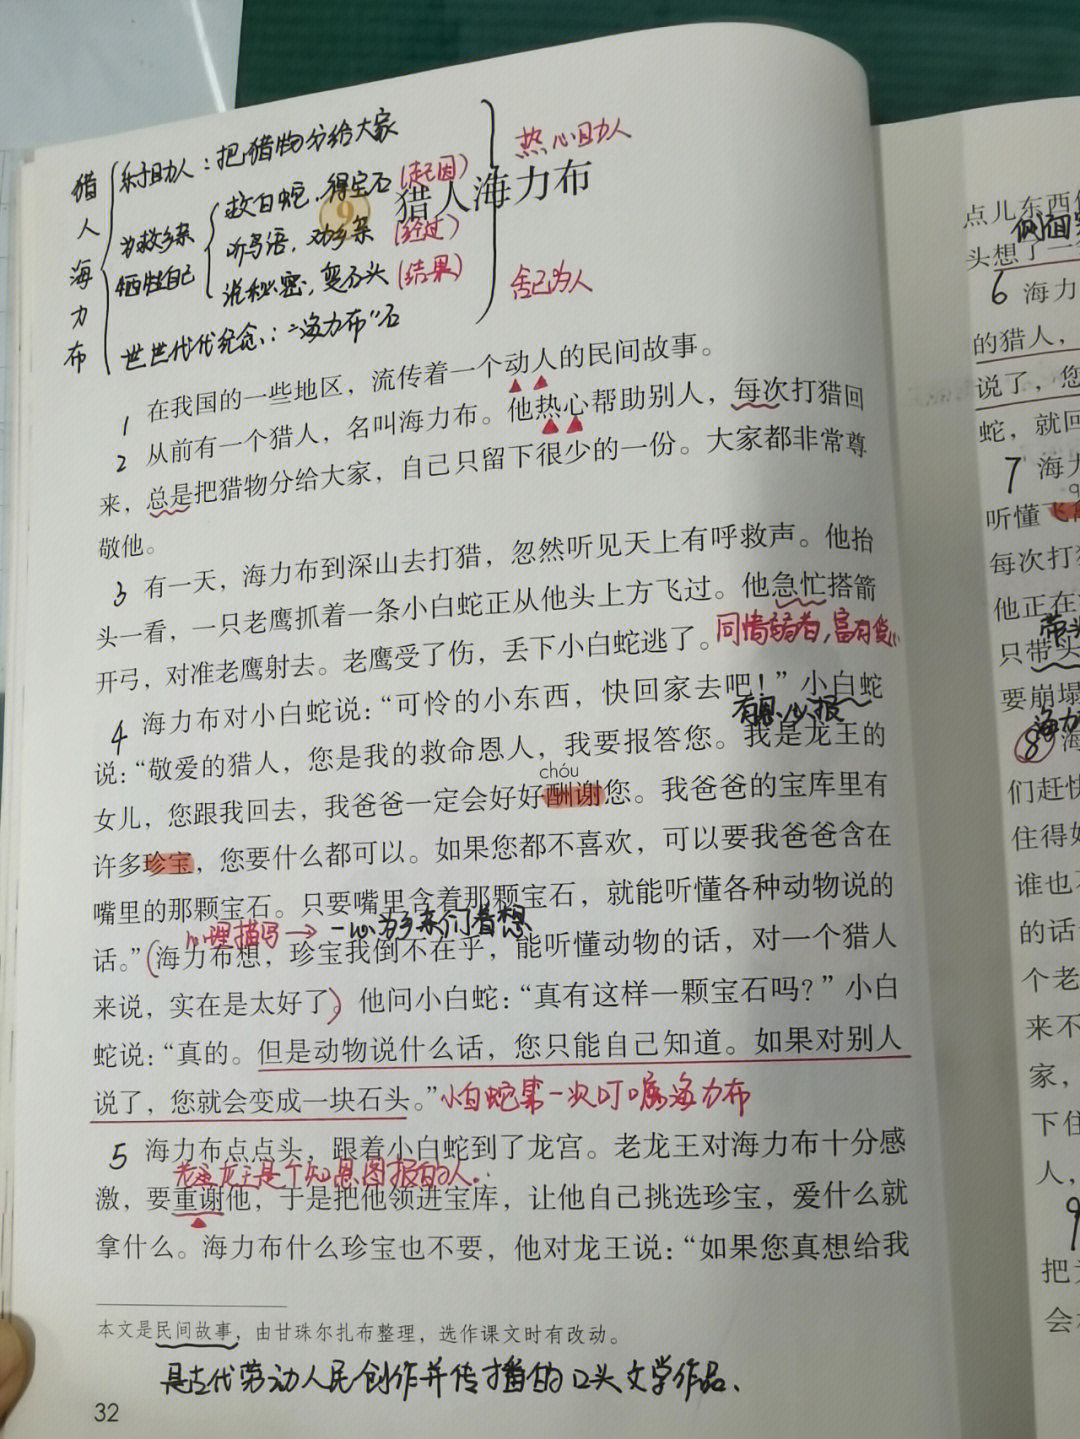 猎人海力布
乐于助人：把猎物分给大家
热心助人
为救乡亲
牺牲自己
救白蛇，得宝石（起因）
听鸟语，劝乡亲（经过）
说秘密，变石头（结果）
舍己为人
世世代代纪念：“海力布”石
9 猎人海力布
1 在我国的一些地区，流传着一个动人的民间故事。
2 从前有一个猎人，名叫海力布。他热心帮助别人，每次打猎回
来，总是把猎物分给大家，自己只留下很少的一份。大家都非常尊
敬他。
3 有一天，海力布到深山去打猎，忽然听见天上有呼救声。他抬
头一看，一只老鹰抓着一条小白蛇正从他头上方飞过。他急忙搭箭
开弓，对准老鹰射去。老鹰受了伤，丢下小白蛇逃了。
同情弱者，富有爱心
4 海力布对小白蛇说：“可怜的小东西，快回家去吧！”小白蛇
有恩必报
说：“敬爱的猎人，您是我的救命恩人，我要报答您。我是龙王的
chóu
女儿，您跟我回去，我爸爸一定会好好酬谢您。我爸爸的宝库里有
许多珍宝，您要什么都可以。如果您都不喜欢，可以要我爸爸含在
嘴里的那颗宝石。只要嘴里含着那颗宝石，就能听懂各种动物说的
心理描写→一心为乡亲们着想
话。”（海力布想，珍宝我倒不在乎，能听懂动物的话，对一个猎人
来说，实在是太好了）他问小白蛇：“真有这样一颗宝石吗？”小白
蛇说：“真的。但是动物说什么话，您只能自己知道。如果对别人
说了，您就会变成一块石头。”小白蛇第一次叮嘱海力布
5 海力布点点头，跟着小白蛇到了龙宫。老龙王对海力布十分感
龙王是个知恩图报的人.
激，要重谢他，于是把他领进宝库，让他自己挑选珍宝，爱什么就
拿什么。海力布什么珍宝也不要，他对龙王说：“如果您真想给我
本文是民间故事，由甘珠尔扎布整理，选作课文时有改动。
是古代劳动人民创作并传播的口头文学作品.
32
点儿东西
侧面
头想了一
6 海力
的猎人，
说了，您
蛇，就回
7 海力
听懂飞
每次打
他正在
带头
只带头
要崩塌
海力
8 海
们赶快
住得好
谁也
的话
个老
来不
家，
下住
人，
9
把
会